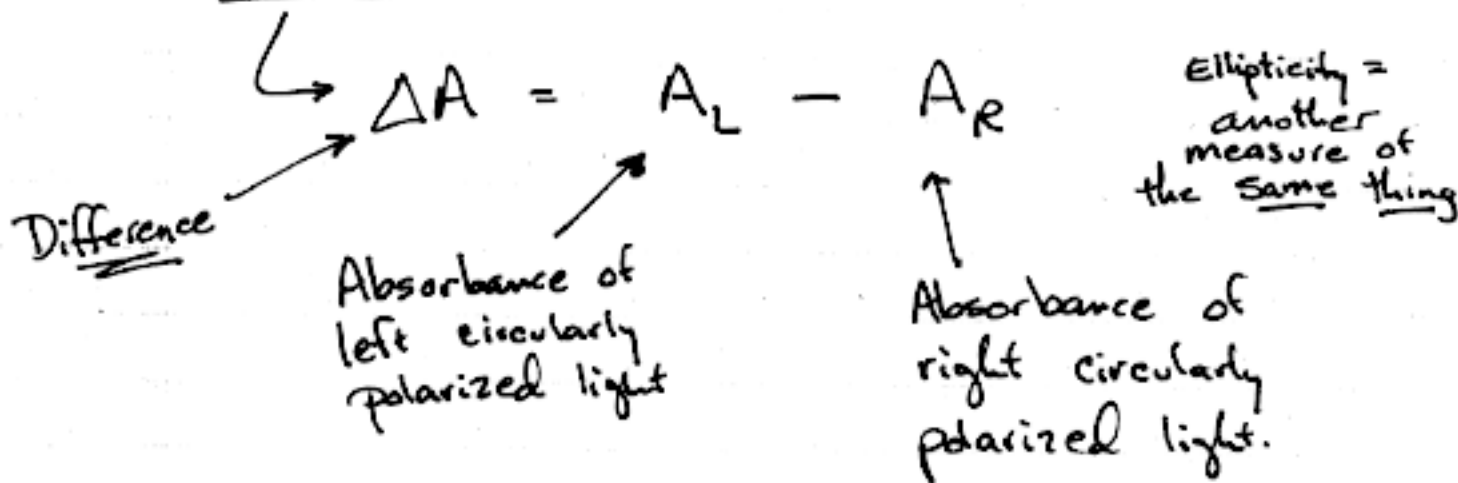 ΔA = A_L − A_R
Ellipticity =
another
measure of
the same thing
Difference
Absorbance of
left circularly
polarized light
Absorbance of
right circularly
polarized light.